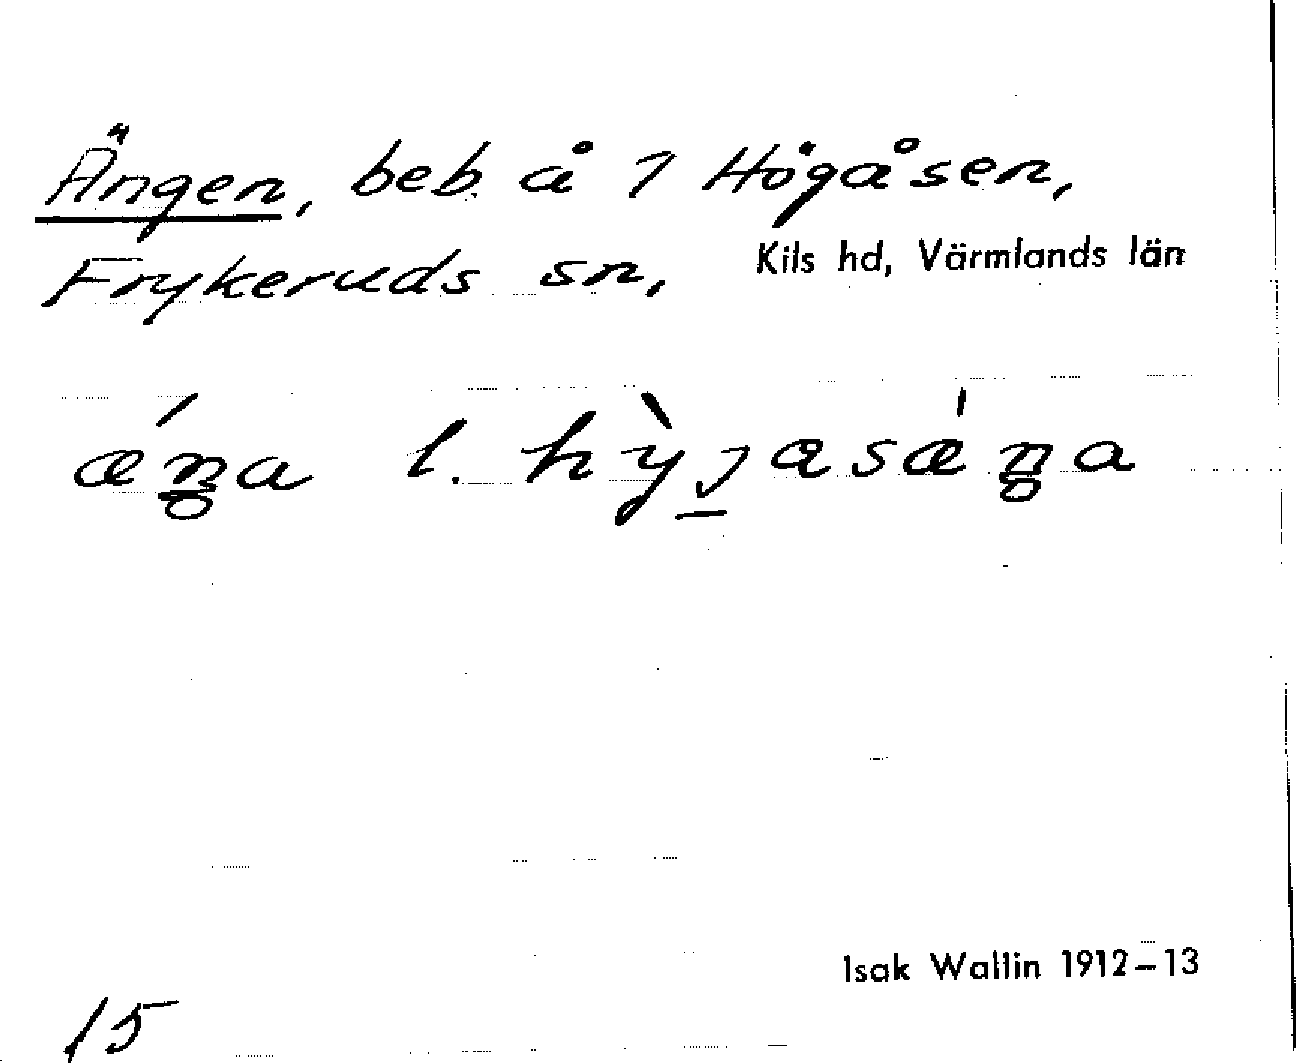 Ängen, beb. å 1 Högåsen,
Frykeruds sn, Kils hd, Värmlands län
l.
Isak Wallin 1912–13
15